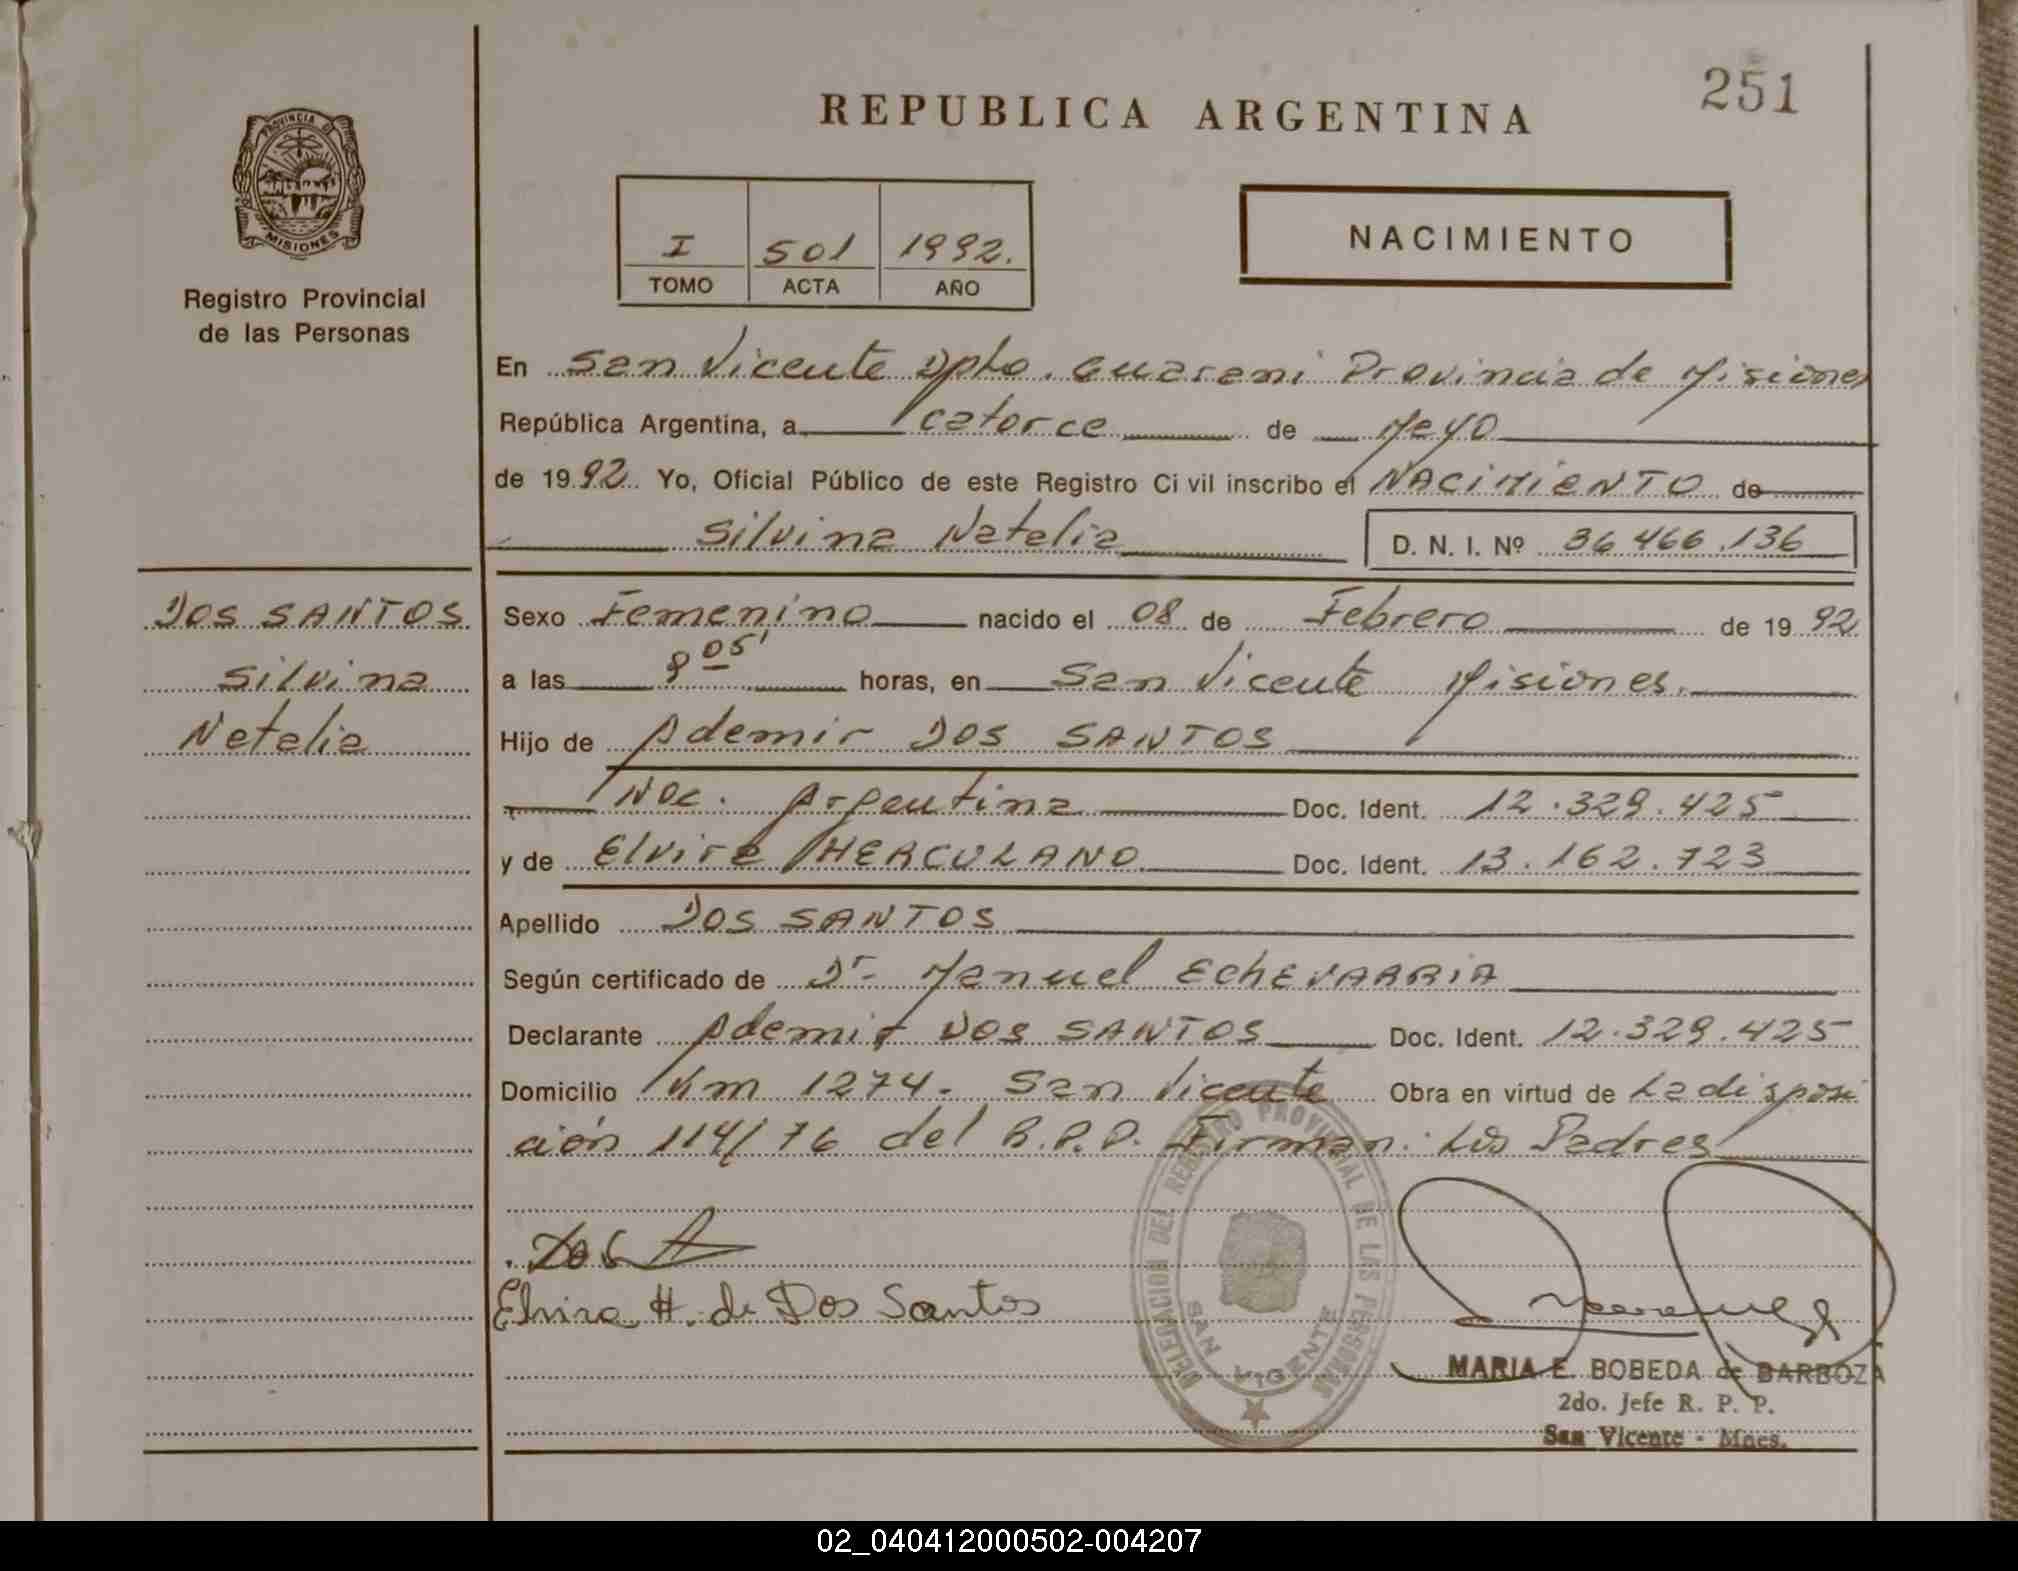 251
REPUBLICA ARGENTINA
PROVINCIA DE
MISIONES
Registro Provincial
de las Personas
I 501 1992.
TOMO ACTA AÑO
NACIMIENTO
En San Vicente Dpto. Guarani Provincia de Misiones
República Argentina, a catorce de Mayo
de 1992 Yo, Oficial Público de este Registro Civil inscribo el NACIMIENTO de
Silvina Natalia D. N. I. Nº 36 466.136
DOS SANTOS
Silvina
Natalia
Sexo Femenino nacido el 08 de Febrero de 1992
a las 8 05' horas, en San Vicente Misiones.
Hijo de Ademir DOS SANTOS
Nac. Argentina Doc. Ident. 12.329.425
y de Elvira HERCULANO Doc. Ident. 13.162.723
Apellido DOS SANTOS
Según certificado de Dr- Manuel EChEVARRIA
Declarante Ademir DOS SANTOS Doc. Ident. 12.329.425
Domicilio Km 1274- San Vicente Obra en virtud de La disposi
ción 114/76 del R.P.P. Firman: Los Padres
Elvira H. de Dos Santos
DELEGACION DEL REGISTRO PROVINCIAL DE LAS PERSONAS
SAN VICENTE
MARIA E. BOBEDA de BARBOZA
2do. Jefe R. P. P.
San Vicente - Mnes.
02_040412000502-004207